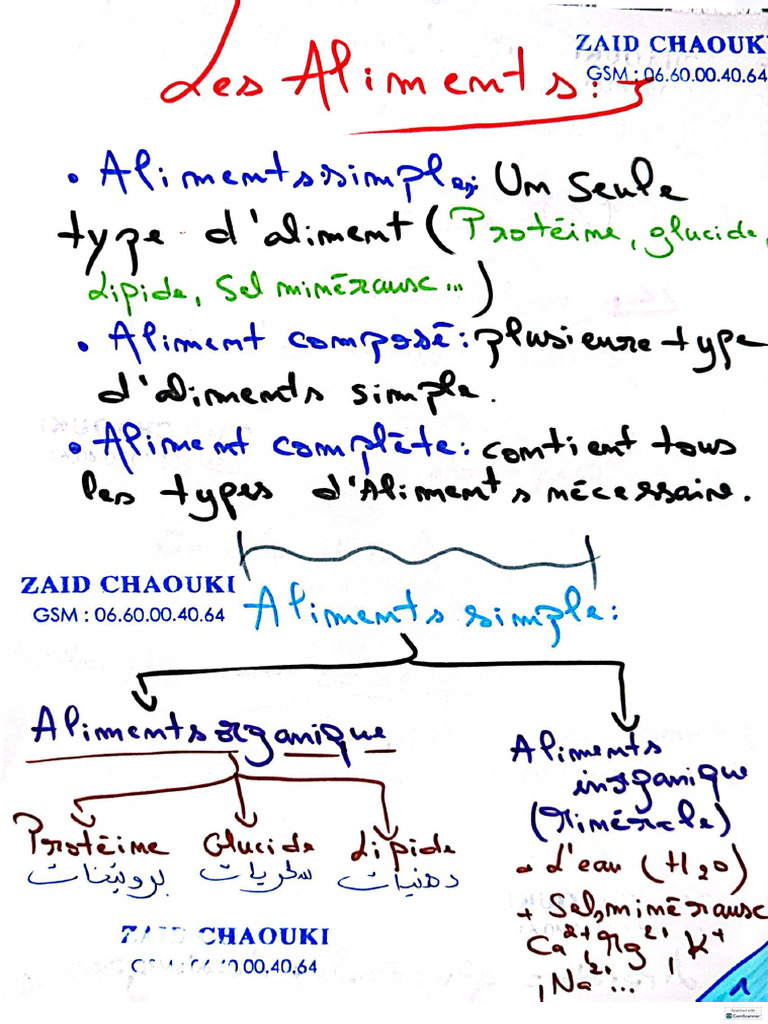 ZAID CHAOUKI
GSM : 06.60.00.40.64
Les Aliments :
• Aliments simple : Un seule
type d'aliment (Protéine, glucide,
Lipide, Sel minéraux ...)
• Aliment composé : plusieure type
d'aliments simple.
• Aliment complète : contient tous
les types d'Aliments nécessaire.
ZAID CHAOUKI
GSM : 06.60.00.40.64
Aliments simple :
Aliments organique
Aliments
inorganique
(Minérale)
Protéine Glucide Lipide
بروتينات سكريات دهنيات
- L'eau (H2O)
+ Sels minéraux
Ca2+ Mg2+, K+
, Na ...
ZAID CHAOUKI
GSM : 06.60.00.40.64
1
CamScanner